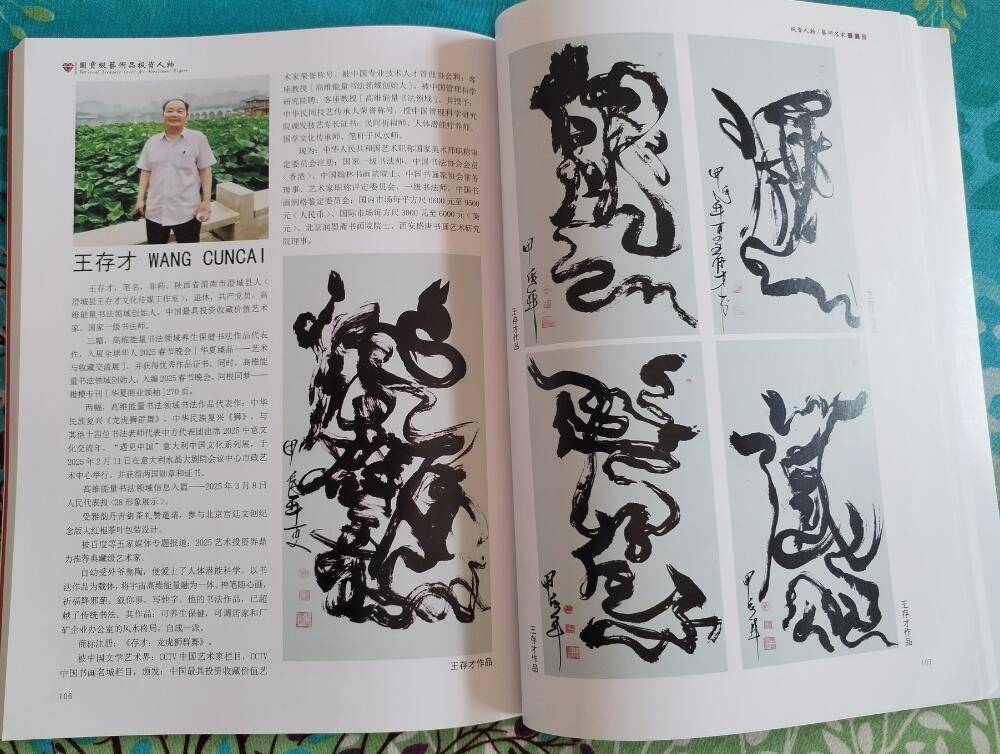 國賓级藝術品投资人物
王存才 WANG CUNCAI
王存才，笔名，非药，陕西省渭南市澄城县人（
澄城县王存才文化传媒工作室），退休，共产党员，高
维能量书法领域创始人，中国最具投资收藏价值艺术
家，国家一级书法师。
三幅，高维能量书法领域养生保健书法作品代表
作，入展全球华人2025春节晚会［华夏臻品——艺术
与收藏交流展］，并获得优秀作品证书。同时，高维能
量书法领域创始人，入编2025春节晚会，同根同梦——
楷模专刊［华夏商业领袖］270页。
两幅，高维能量书法领域书法作品代表作：中华
民族复兴《龙虎狮群舞》，中华民族复兴《狮》，与
其他十四位书法老师代表中方代表团出席2025中意文
化交流年，“遇见中国”意大利中国文化系列展，于
2025年2月11日在意大利水晶大剧院会议中心市政艺
术中心举行，并获得两国勋章和证书。
高维能量书法领域信息入篇——2025年3月8日
人民代表报<28形象展示>。
受雅韵丹青御茶礼赞邀请，参与北京宫廷文创纪
念版大红袍茶叶包装设计。
被百度等五家媒体专题报道：2025艺术投资界鼎
力推荐典藏级艺术家。
自幼受外爷熏陶，便爱上了人体潜能科学。以书
法作品为载体，将宇宙高维能量融为一体，神笔随心画，
祈福降邪蒙，叙你事，写他字。他的书法作品，已超
越了传统书法。其作品：可养生保健，可调居家和厂
矿企业办公室的风水格局，自成一派。
商标注册：《存才：龙虎狮群舞》。
被中国文学艺术界：CCTV中国艺术家栏目，CCTV
中国书画名城栏目，颁发：中国最具投资收藏价值艺
106
术家荣誉称号，被中国专业技术人才管理协会聘：客
座教授［高维能量书法领域创始人］。被中国管理科学
研究院聘：客座教授［高维能量书法领域］。并授予：
中华民间技艺传承人荣誉称号，授中国管理科学研究
院颁发技艺专长证书：民间祈福师、人体潜能疗养师、
国学文化传承师、笔杆子风水师。
现为：中华人民共和国艺术职称国家美术师职称审
定委员会注册：国家一级书法师、中国书法协会会员
（香港）、中国翰林书画院院士、中国书画家协会常务
理事、艺术家职称评定委员会，一级书法师。中国书
画润格鉴定委员会：国内市场每平方尺6600元至9500
元（人民币）、国际市场每方尺3000元至6000元（美
元）、北京润墨斋书画院院士，西安盛唐书画艺术研究
院理事。
王存才作品
投资人物/藝術名家
甲辰年
王存才作品
王存才作品
甲辰年
王存才作品
甲辰年
王存才作品
107